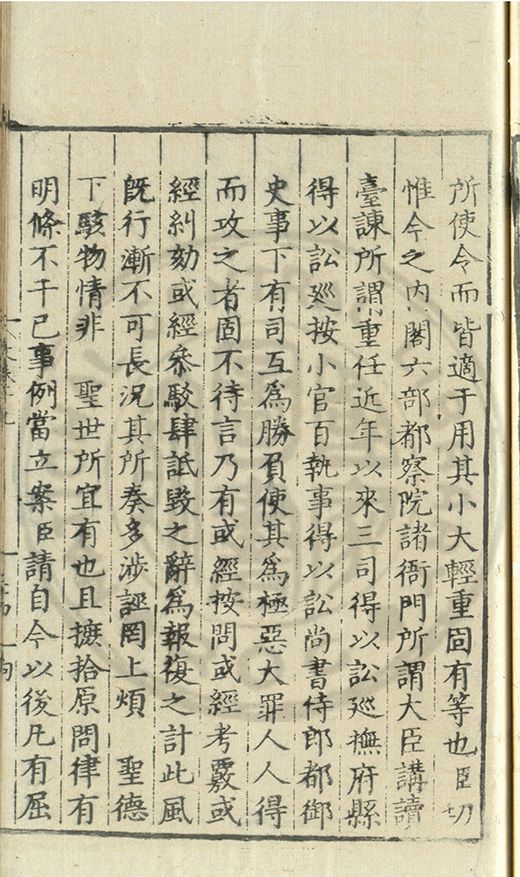 所使令而皆適于用其小大輕重固有等也臣切
惟今之内閣六部都察院諸衙門所謂大臣講讀
臺諫所謂重任近年以來三司得以訟廵撫府縣
得以訟廵按小官百執事得以訟尚書侍郎都御
史事下有司互爲勝負使其爲極惡大罪人人得
而攻之者固不待言乃有或經按問或經考覈或
經糾劾或經叅駁肆詆毀之辭爲報復之計此風
旣行漸不可長況其所奏多涉誣罔上煩　聖德
下駭物情非　聖世所宜有也且摭拾原問律有
明條不干已事例當立案臣請自今以後凡有屈